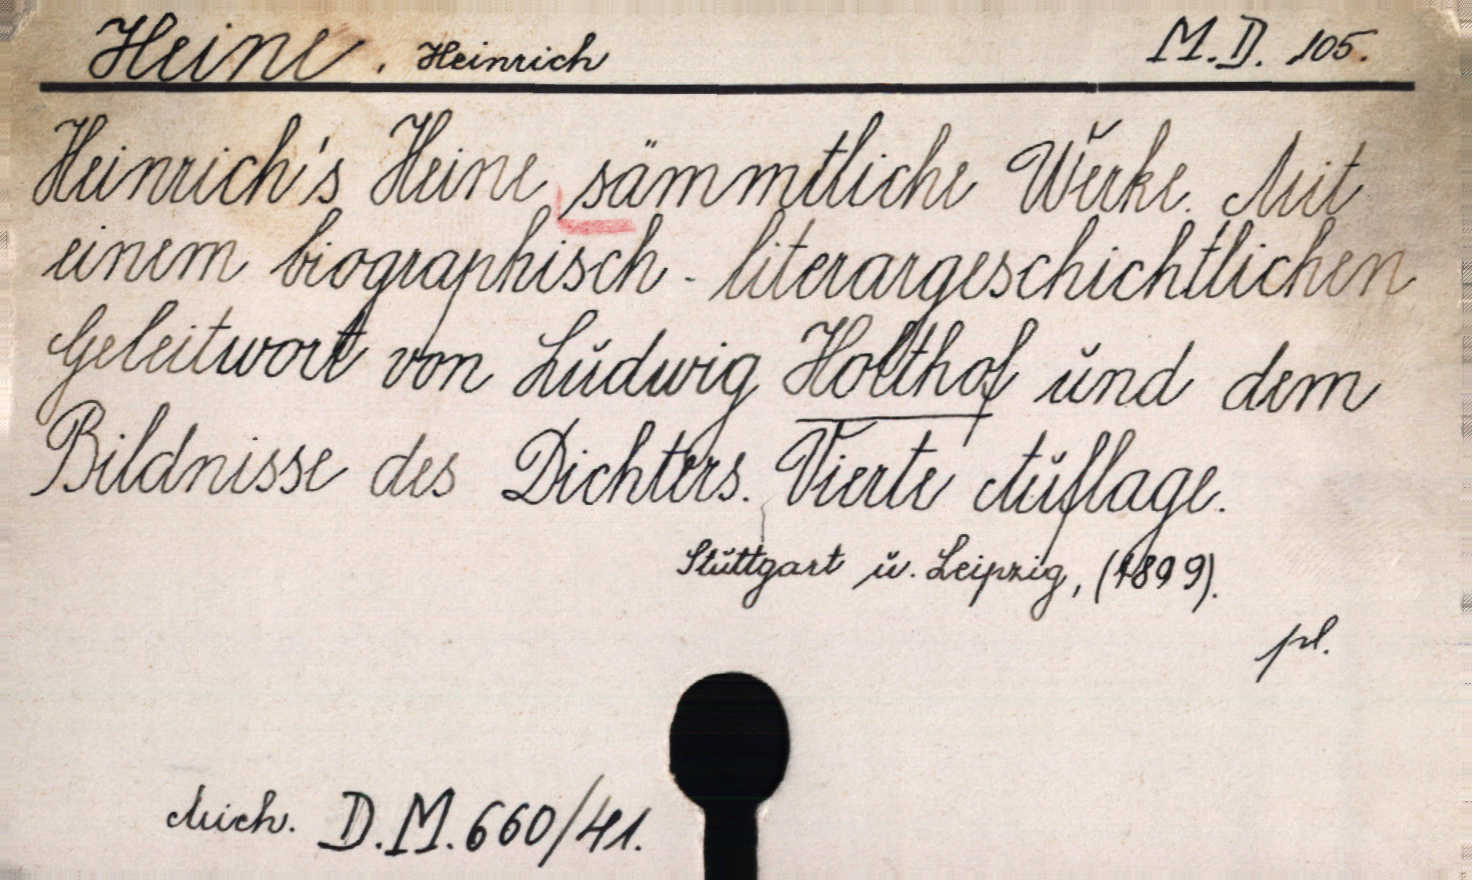 Heine, Heinrich M.D. 105.
Heinrich's Heine sämmtliche Werke. Mit
einem biographisch-literargeschichtlichen
Geleitwort von Ludwig Holthof und dem
Bildnisse des Dichters. Vierte Auflage.
Stuttgart u. Leipzig, (1899).
pl.
Mich. D.M. 660/41.